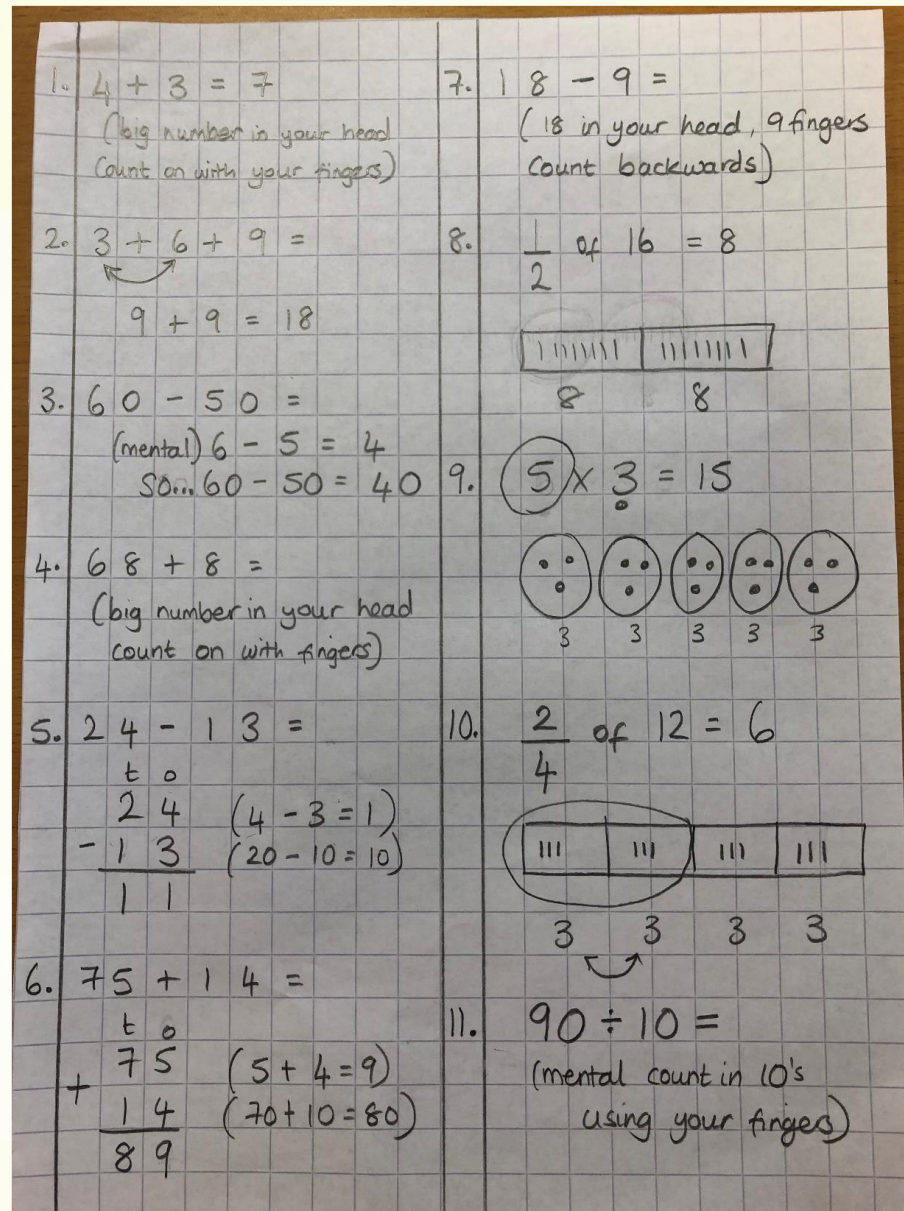 1. 4 + 3 = 7
(big number in your head
Count on with your fingers)
2. 3 + 6 + 9 =
9 + 9 = 18
3. 60 - 50 =
(mental) 6 - 5 = 4
So... 60 - 50 = 40
4. 68 + 8 =
(big number in your head
count on with fingers)
5. 24 - 13 =
t o
24 (4 - 3 = 1)
- 13 (20 - 10 = 10)
11
6. 75 + 14 =
t o
75 (5 + 4 = 9)
+ 14 (70 + 10 = 80)
89
7. 18 - 9 =
(18 in your head, 9 fingers
count backwards)
8. 1/2 of 16 = 8
8 8
9. 5 x 3 = 15
3 3 3 3 3
10. 2/4 of 12 = 6
3 3 3 3
11. 90 ÷ 10 =
(mental count in 10's
using your fingers)